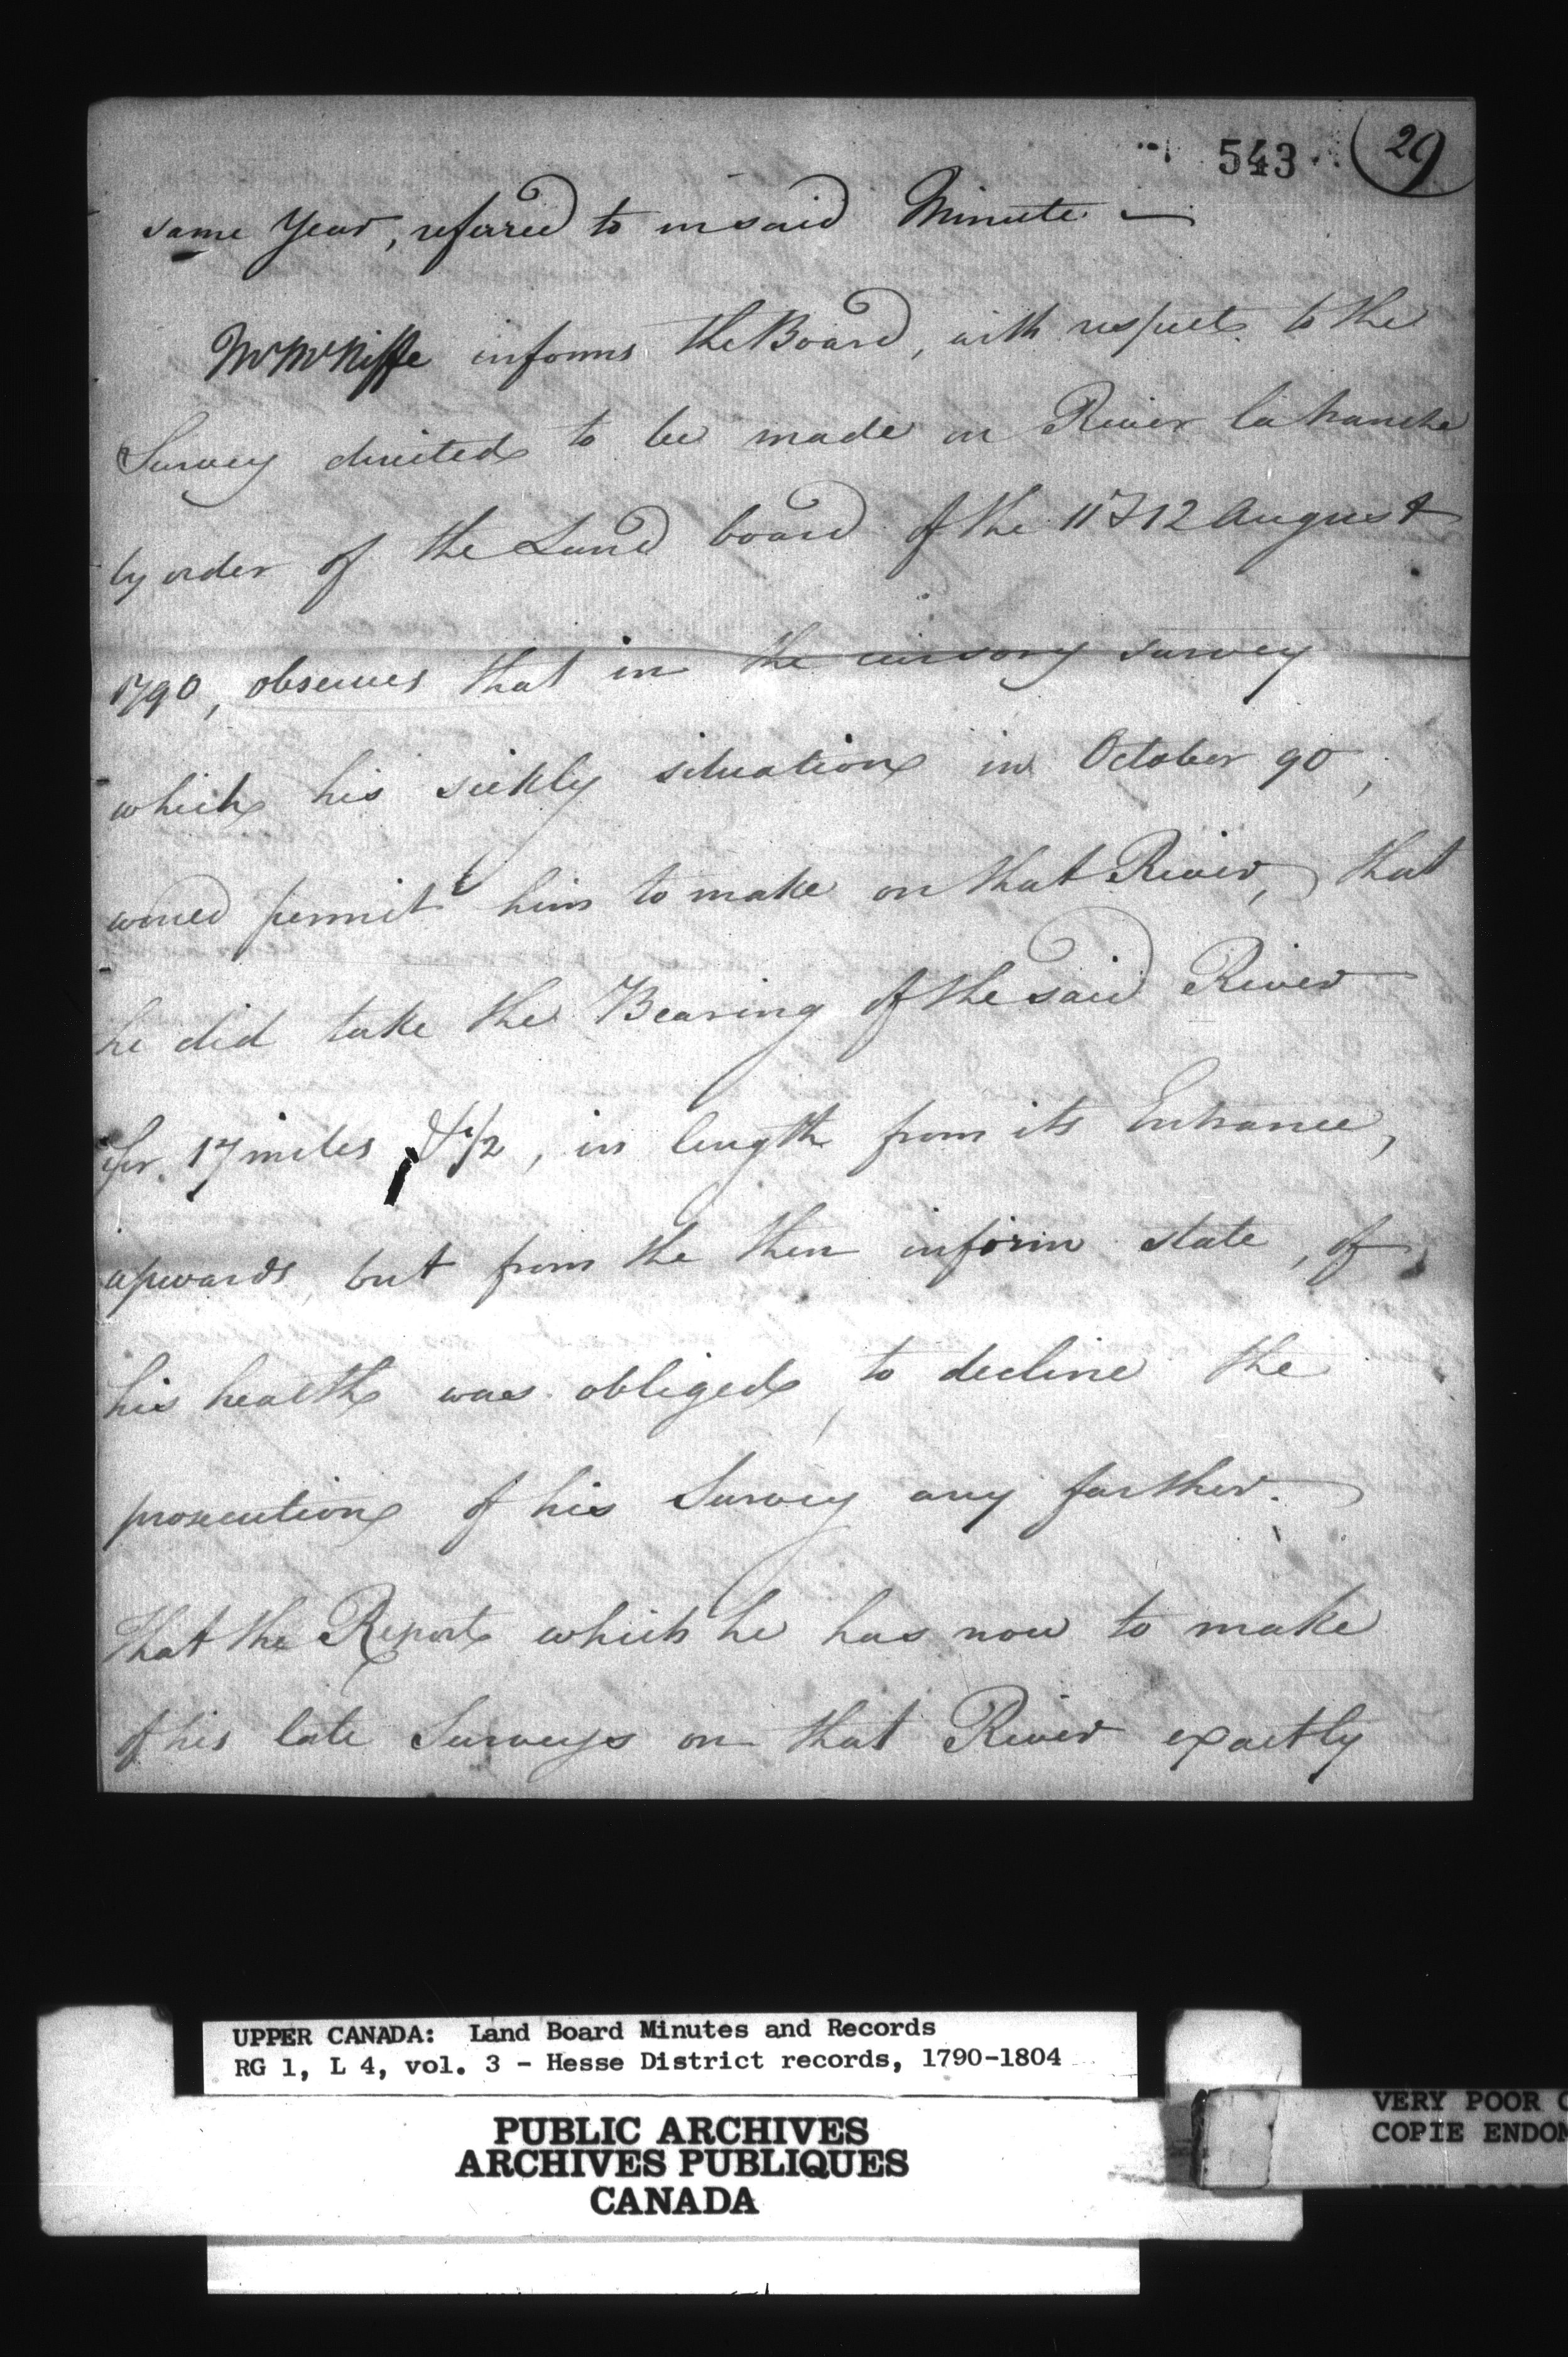 543 29
same Year, referred to in said Minute —
Mr McNiffe informs the Board, with respect to the
Survey directed to be made on River la tranche
by order of the Land board of the 11 & 12 August
1790, observes that in the cursory survey
which his sickly situation in October 90,
would permit him to make on that River, that
he did take the Bearing of the said River
for 17 miles & 1/2, in length from its Entrance,
upwards, but from the then infirm state, of
his health was obliged to decline the
prosecution of his Survey any farther.
That the Report which he has now to make
of his late Surveys on that River exactly
UPPER CANADA: Land Board Minutes and Records
RG 1, L 4, vol. 3 - Hesse District records, 1790-1804
PUBLIC ARCHIVES
ARCHIVES PUBLIQUES
CANADA
VERY POOR
COPIE